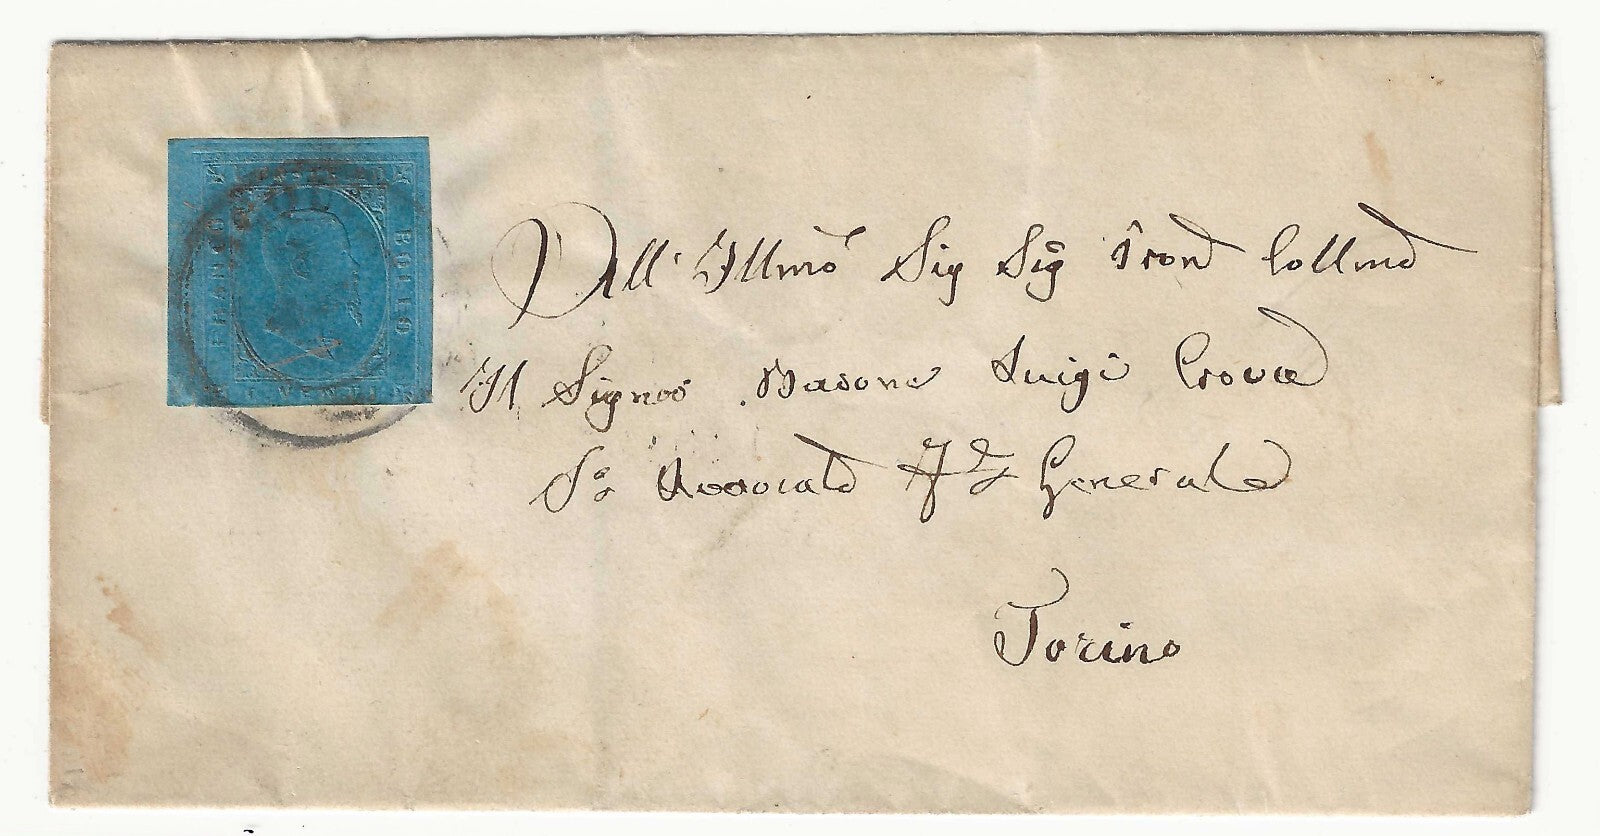 FRANCO
BOLLO
C. VENTI
All' Illmo Sig Sig Pron Collmo
Il Signor Barone Luigi Crova
Avvocato Generale
Torino